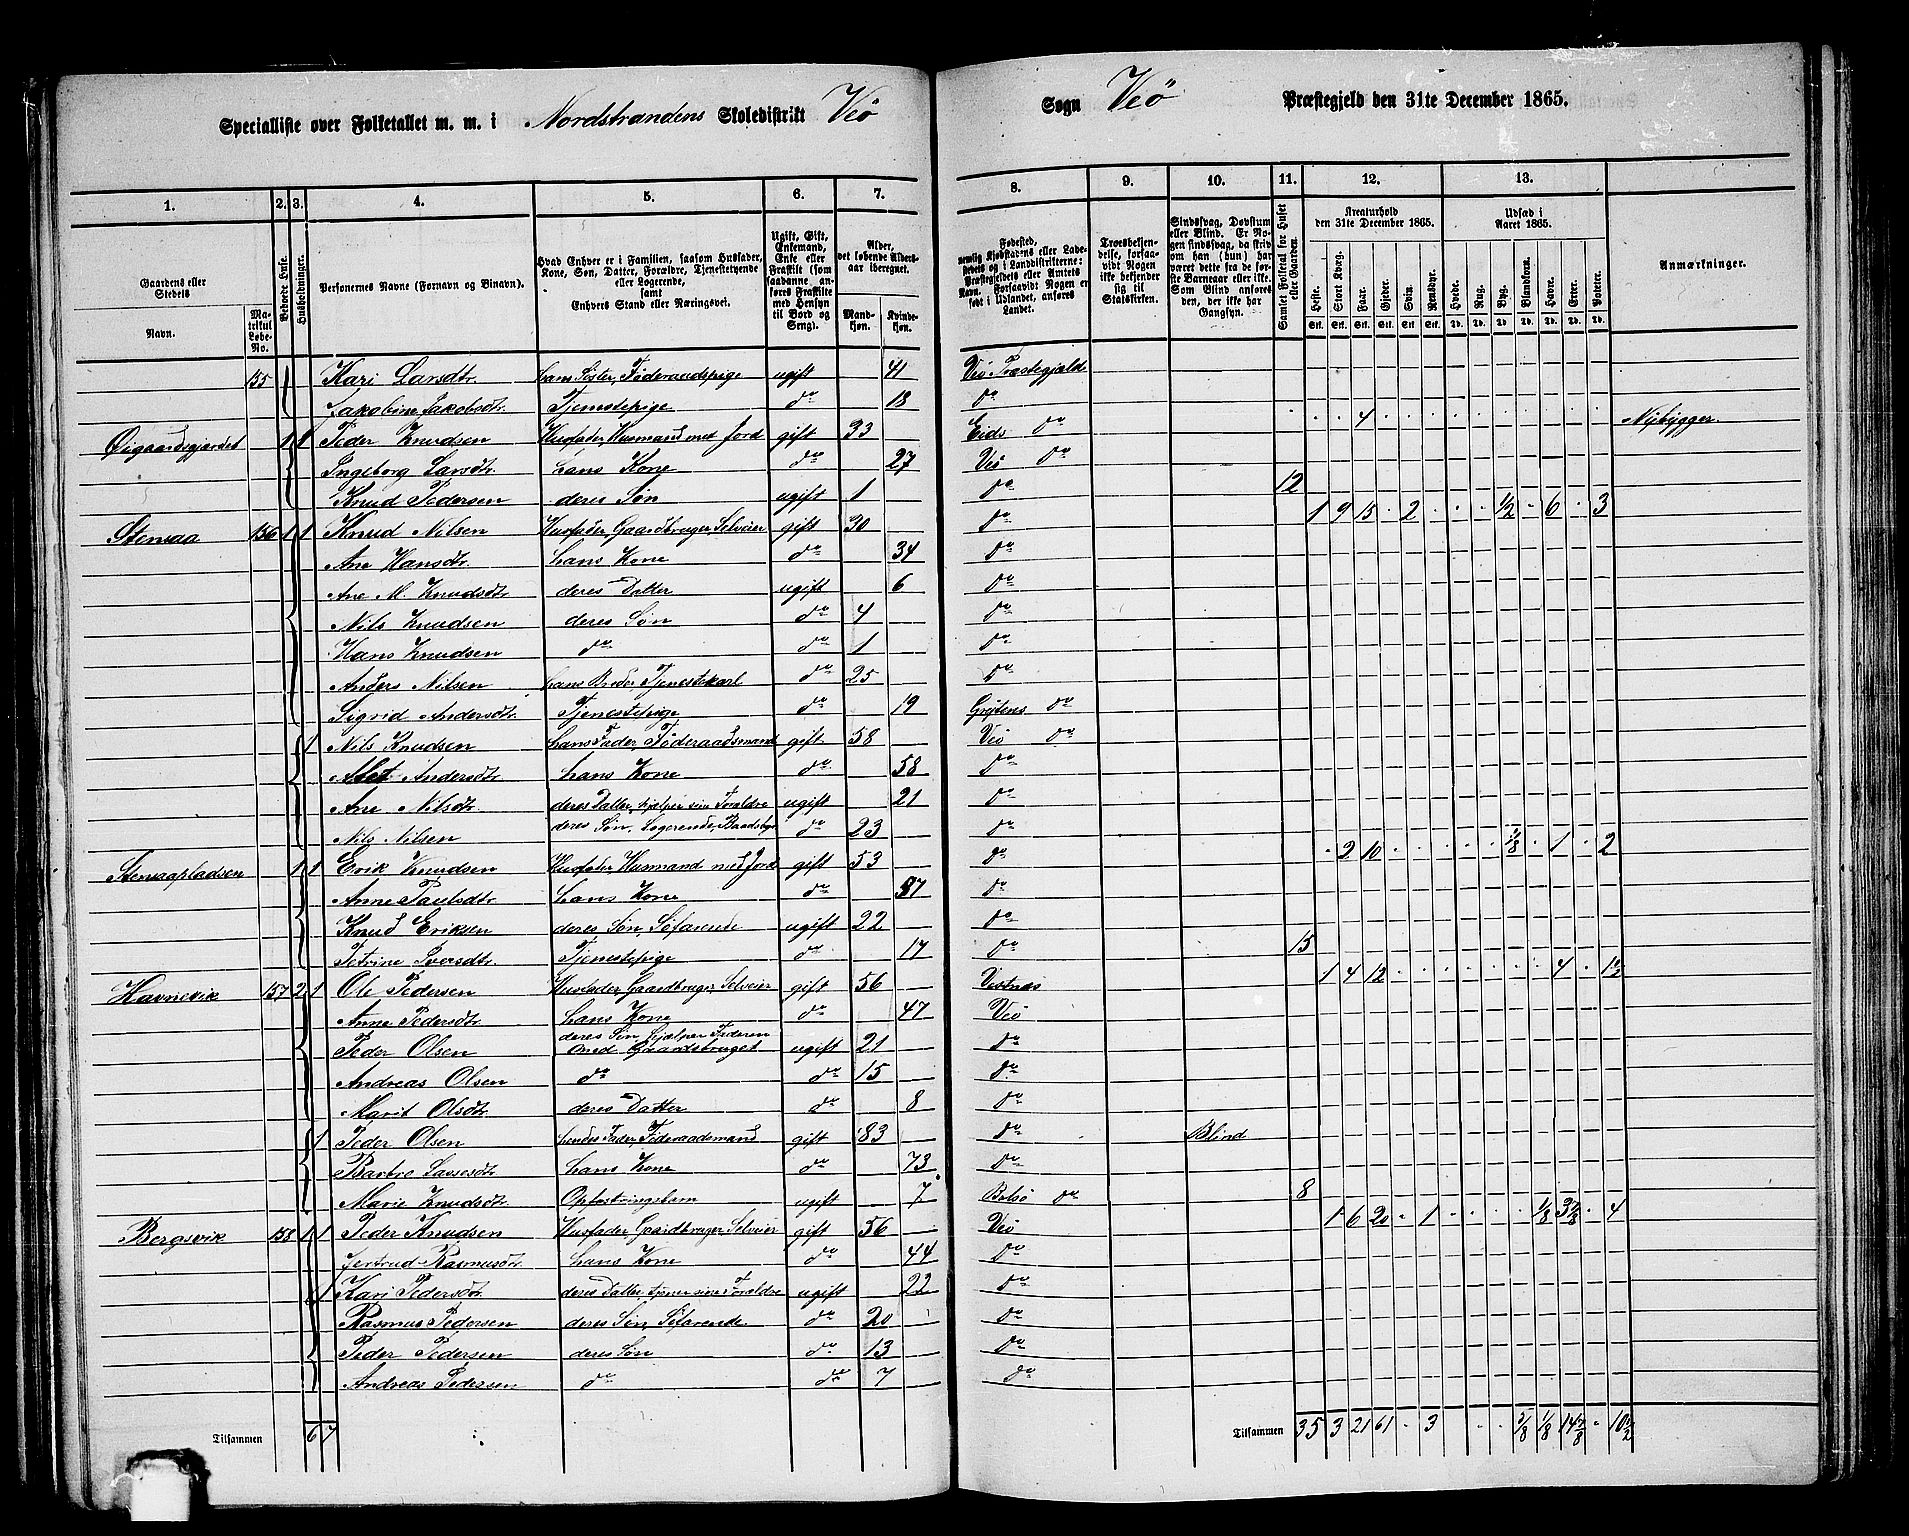 Specialliste over Folketallet m. m. i Nordstrandens Skoledistrikt Veö Sogn Veö Præstegjeld den 31te December 1865.
1. 2. 3. 4. 5. 6. 7. 8. 9. 10. 11. 12. 13.
Gaardens eller Stedets Navn. Matrikul Løbe-No. Beboede Huse. Husholdninger. Personernes Navne (Fornavn og Binavn). Hvad Enhver er i Familien, saasom Husfader, Kone, Søn, Datter, Forældre, Tjenestetyende eller Logerende, samt Enhvers Stand eller Næringsvei. Ugift, Gift, Enkemand, Enke eller Fraskilt (som saadanne, anføres Fraskilte med Hensyn til Bord og Seng). Alder, det løbende Alders-aar iberegnet. Mand-kjøn. Kvinde-kjøn.
Fødested, nemlig Kjøbstadens eller Ladestedets og i Landdistrikterne: Præstegjeldets eller Amtets Navn. Forsaavidt Nogen er født i Udlandet, anføres Landet. Troesbekjendelse, forsaavidt Nogen ikke bekjender sig til Statskirken. Sindssvag, Døvstum eller Blind. Er Nogen sindssvag, da skriv om han (hun) har været dette fra de første Barneaar eller ikke. Som Blind anføres den, der ikke har Gangsyn. Samlet Folketal for Huset eller Gaarden. Kreaturhold den 31te December 1865. Udsæd i Aaret 1865. Anmærkninger.
Heste. Stort Kvæg. Faar. Gjeder. Svin. Rensdyr. Hvede. Rug. Byg. Blandkorn. Havre. Erter. Poteter.
155 Kari Larsdtr. hans Søster, Föderaadspige ugift 41 Veö Præstegjæld
Jakobine Jakobsdtr. Tjenestepige do 18 do
Öigaardsgjærdet 1 1 Peder Knudsen Husfader, Husmand med Jord gift 33 Eids do 4 Nybygger.
Ingeborg Larsdtr. hans Kone do 27 Veö do
Knud Pedersen deres Søn ugift 1 do 12
Stensaa 156 1 1 Knud Nilsen Husfader, Gaardbruger, Selveier gift 30 do 1 9 15 2 1/2 6 3
Ane Hansdtr. hans Kone do 34 do
Ane M. Knudsdtr. deres Datter ugift 6 do
Nils Knudsen deres Søn do 4 do
Hans Knudsen do do 1 do
Anders Nilsen hans Broder Tjenestekarl do 25 do
Sigrid Andersdtr. Tjenestepige do 19 Grytens do
1 Nils Knudsen hans Fader, Föderaadsmand gift 58 Veö do
Andersdtr. hans Kone do 58 do
Ane Nilsdtr. deres Datter, hjælper sine Forældre ugift 21 do
Nils Nilsen deres Søn, Logerende, do 23 do
Stensaapladsen 1 1 Erik Knudsen Husfader Husmand med Jord gift 53 do 3 10 1/8 1 2
Anne Paulsdtr. hans Kone do 57 do
Knud Eriksen deres Søn, Söfarende ugift 22 do
Petrine Iversdtr. Tjenestepige do 17 do 15
Havnevik 157 2 1 Ole Pedersen Husfader Gaardbruger, Selveier gift 56 Vestnæs 1 4 12 4 1 1/2
Anne Pedersdtr. hans Kone do 47 Veö
Peder Olsen deres Søn hjælper Faderen med Gaardsbruget ugift 21 do
Andreas Olsen do do 15 do
Marit Olsdtr. deres Datter do 8 do
1 Peder Olsen hendes Fader, Föderaadsmand gift 83 do Blind
Barbro Lassesdtr. hans Kone do 73 do
Marie Knudsdtr. Opfostringsbarn ugift 7 Bolsö do 8
Bergsvik 158 1 1 Peder Knudsen Husfader, Gaardbruger, Selveier gift 56 Veö 1 6 20 1 1/8 3 7/8 4
Gertrud Rasmusdtr. hans Kone do 44 do
1 Kari Pedersdtr. deres Datter, tjener sine Forældre ugift 22 do
Rasmus Pedersen deres Søn, Söfarende do 20 do
Peder Pedersen deres Søn do 13 do
Andreas Pedersen do do 7 do
Tilsammen 6 7 Tilsammen 35 3 21 61 3 5/8 1/8 14 7/8 10 1/2